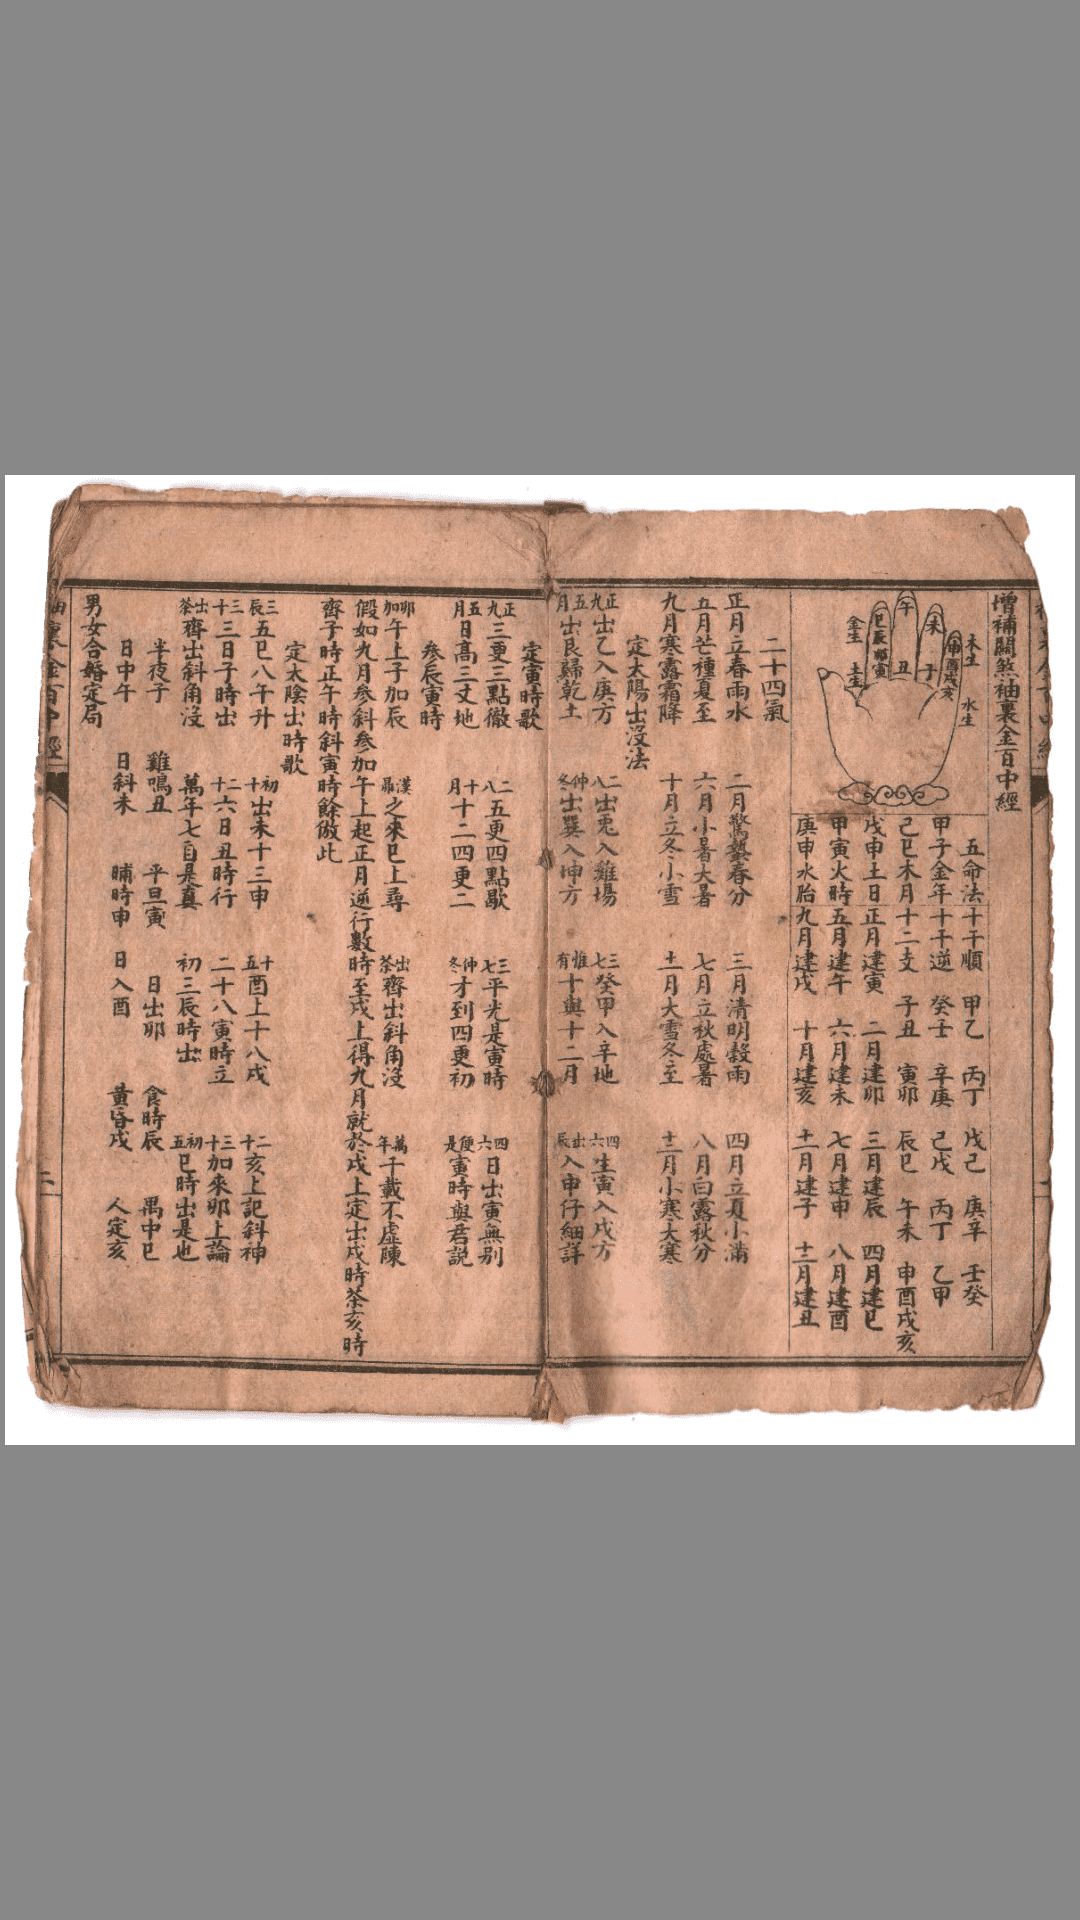 增補關煞袖裏金百中經
午
未
巳辰卯寅
申酉戌亥
丑
子
金生
土生
木生
水生
五命法十干順 甲乙 丙丁 戊己 庚辛 壬癸
甲子金年十干逆 癸壬 辛庚 己戊 丙丁 乙甲
己巳木月十二支 子丑 寅卯 辰巳 午未 申酉戌亥
戊申土日正月建寅 二月建卯 三月建辰 四月建巳
甲寅火時五月建午 六月建未 七月建申 八月建酉
庚申水胎九月建戌 十月建亥 十一月建子 十二月建丑
二十四氣
正月立春雨水 二月驚蟄春分 三月清明穀雨 四月立夏小滿
五月芒種夏至 六月小暑大暑 七月立秋處暑 八月白露秋分
九月寒露霜降 十月立冬小雪 十一月大雪冬至 十二月小寒大寒
定太陽出沒法
正九出乙入庚方 二八出兎入雞場 三七癸甲入辛地 四六生寅入戌方
五月出艮歸乾土 仲冬出巽入坤方 惟有十與十二月 出辰入申仔細詳
定寅時歌
正九三更三點徹 二八五更四點歇 三七平光是寅時 四六日出寅無別
五月日高三丈地 十月十二四更二 仲冬才到四更初 便是寅時與君説
參辰寅時
卯加午上子加辰 漢之來巳上尋 出荼齊出斜角沒 萬年千載不虛陳
假如九月參斜參加午上起正月逆行數時至戌上得九月就於戌上定出戌時荼亥時
齊子時正午時斜寅時餘倣此
定太陰出時歌
三辰五巳八午升 初十出未十三申 十五酉上十八戌 二十亥上記斜神
三十三日子時出 二十六日丑時行 二十八寅時立 三十加來卯上論
出荼齊出斜角沒 萬年七自是真 初三辰時出 初五巳時出是也
半夜子 雞鳴丑 平旦寅 日出卯 食時辰 禺中巳
日中午 日斜未 晡時申 日入酉 黃昏戌 人定亥
男女合婚定局
二